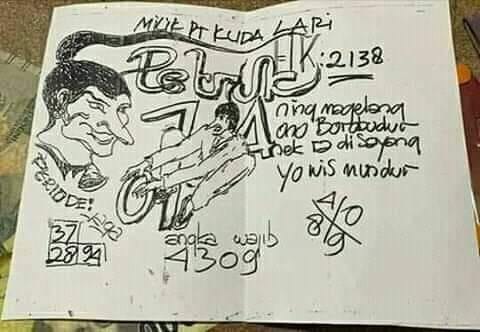 MILIK PT KUDA LARI
HK:2138
74
ning magelang
ono Borobudur
nek ra disayang
yo wis mundur
PERIODE!
37
28 94
angka wajib
4309
4 0
8 9